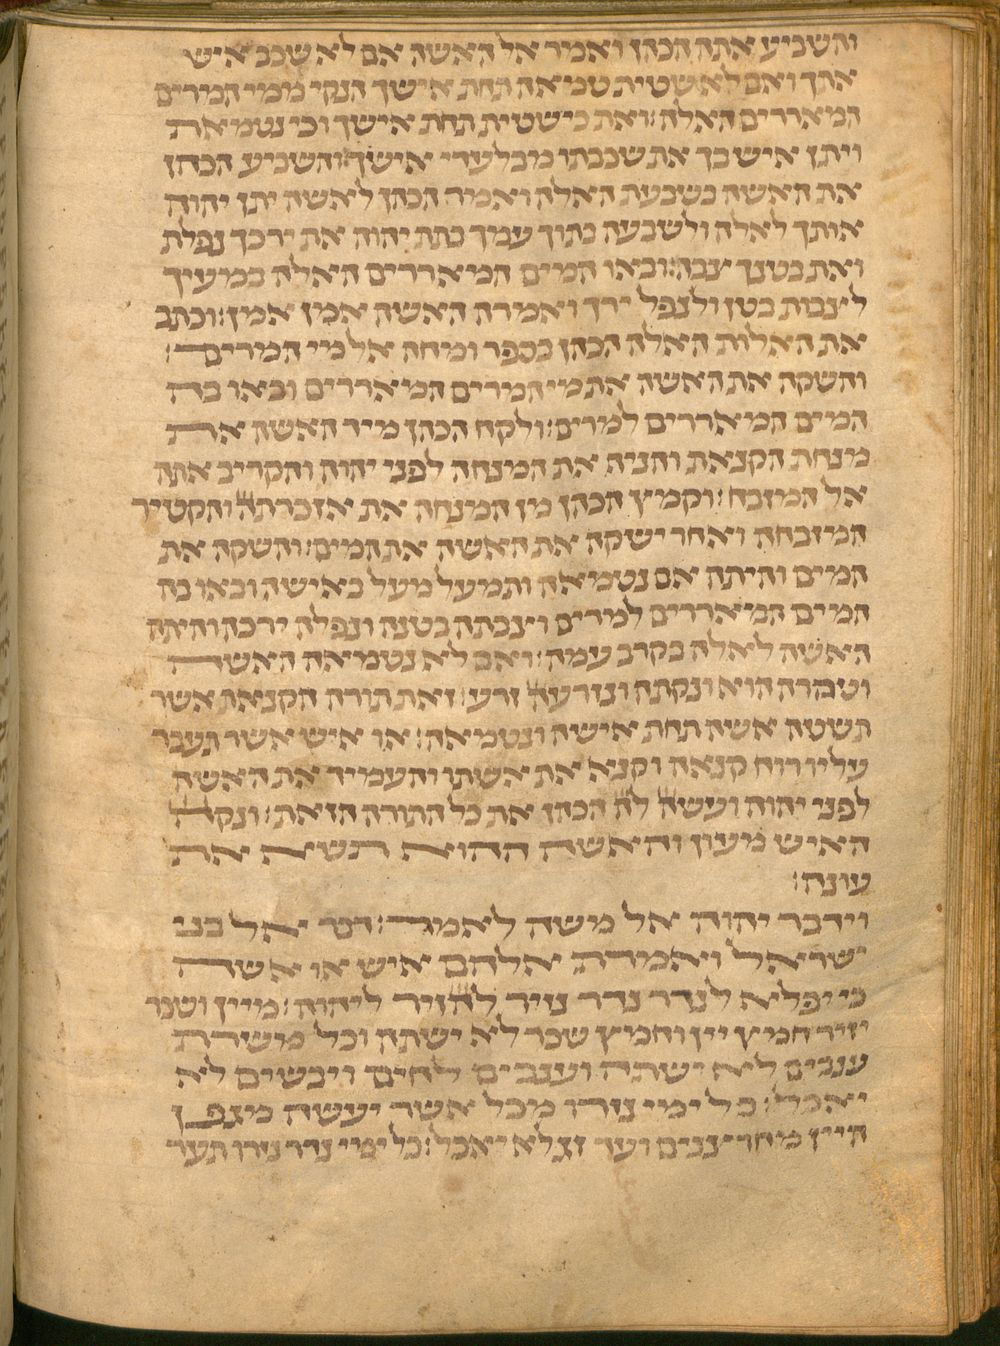 והשביע אתה הכהן ואמר אל האשה אם לא שכב איש
אתך ואם לא שטית טמאה תחת אישך הנקי ממי המרים
המאררים האלה׃ ואת כי שטית תחת אישך וכי נטמאת
ויתן איש בך את שכבתו מבלעדי אישך׃ והשביע הכהן
את האשה בשבעת האלה ואמר הכהן לאשה יתן יהוה
אותך לאלה ולשבעה בתוך עמך בתת יהוה את ירכך נפלת
ואת בטנך צבה׃ ובאו המים המאררים האלה במעיך
לצבות בטן ולנפל ירך ואמרה האשה אמן אמן׃ וכתב
את האלות האלה הכהן בספר ומחה אל מי המרים׃
והשקה את האשה את מי המרים המאררים ובאו בה
המים המאררים למרים׃ ולקח הכהן מיד האשה את
מנחת הקנאת והניף את המנחה לפני יהוה והקריב אתה
אל המזבח׃ וקמץ הכהן מן המנחה את אזכרתה והקטיר
המזבחה ואחר ישקה את האשה את המים׃ והשקה את
המים והיתה אם נטמאה ותמעל מעל באישה ובאו בה
המים המאררים למרים וצבתה בטנה ונפלה ירכה והיתה
האשה לאלה בקרב עמה׃ ואם לא נטמאה האשה
וטהרה הוא ונקתה ונזרעה זרע׃ זאת תורת הקנאת אשר
תשטה אשה תחת אישה ונטמאה׃ או איש אשר תעבר
עליו רוח קנאה וקנא את אשתו והעמיד את האשה
לפני יהוה ועשה לה הכהן את כל התורה הזאת׃ ונקה
האיש מעון והאשה ההוא תשא את
עונה׃
וידבר יהוה אל משה לאמר׃ דבר אל בני
ישראל ואמרת אלהם איש או אשה
כי יפלא לנדר נדר נזיר להזיר ליהוה׃ מיין ושכר
יזיר חמץ יין וחמץ שכר לא ישתה וכל משרת
ענבים לא ישתה וענבים לחים ויבשים לא
יאכל׃ כל ימי נזרו מכל אשר יעשה מגפן
היין מחרצנים ועד זג לא יאכל׃ כל ימי נדר נזרו תער